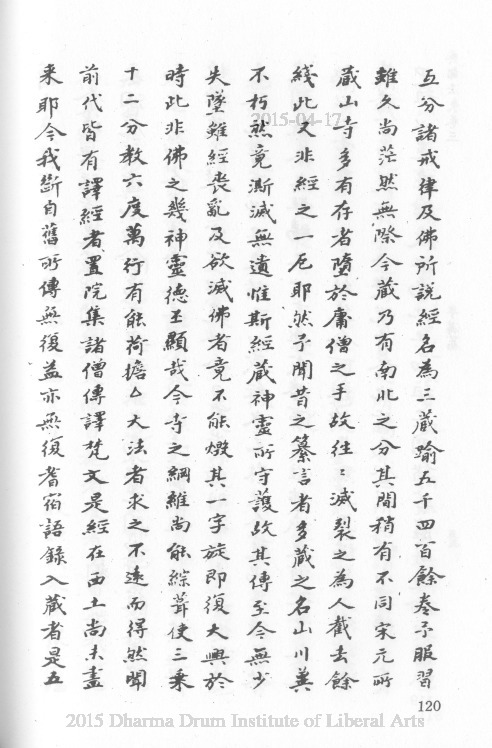 五分諸戒律及佛所説經名為三蔵踰五千四百餘卷予服習
雖久尚茫然無際今蔵乃有南北之分其間稍有不同宋元所
蔵山寺多有存者墮於庸僧之手故往〻滅裂之為人截去餘
綫此又非經之一厄耶然予聞昔之纂言者多蔵之名山川冀
不朽然竟澌滅無遺惟斯經蔵神靈所守護故其傳至今無少
失墜雖經喪亂及欲滅佛者竟不能燬其一字旋即復大興於
時此非佛之幾神靈德丕顯哉今寺之綱維尚能綜葺使三乗
十二分教六度萬行有能荷擔厶大法者求之不遠而得然聞
前代皆有譯經者置院集諸僧傳譯梵文是經在西土尚未盡
来耶今我斷自舊所傳無復益亦無復耆宿語錄入蔵者是五
120
2015-04-17
2015 Dharma Drum Institute of Liberal Arts